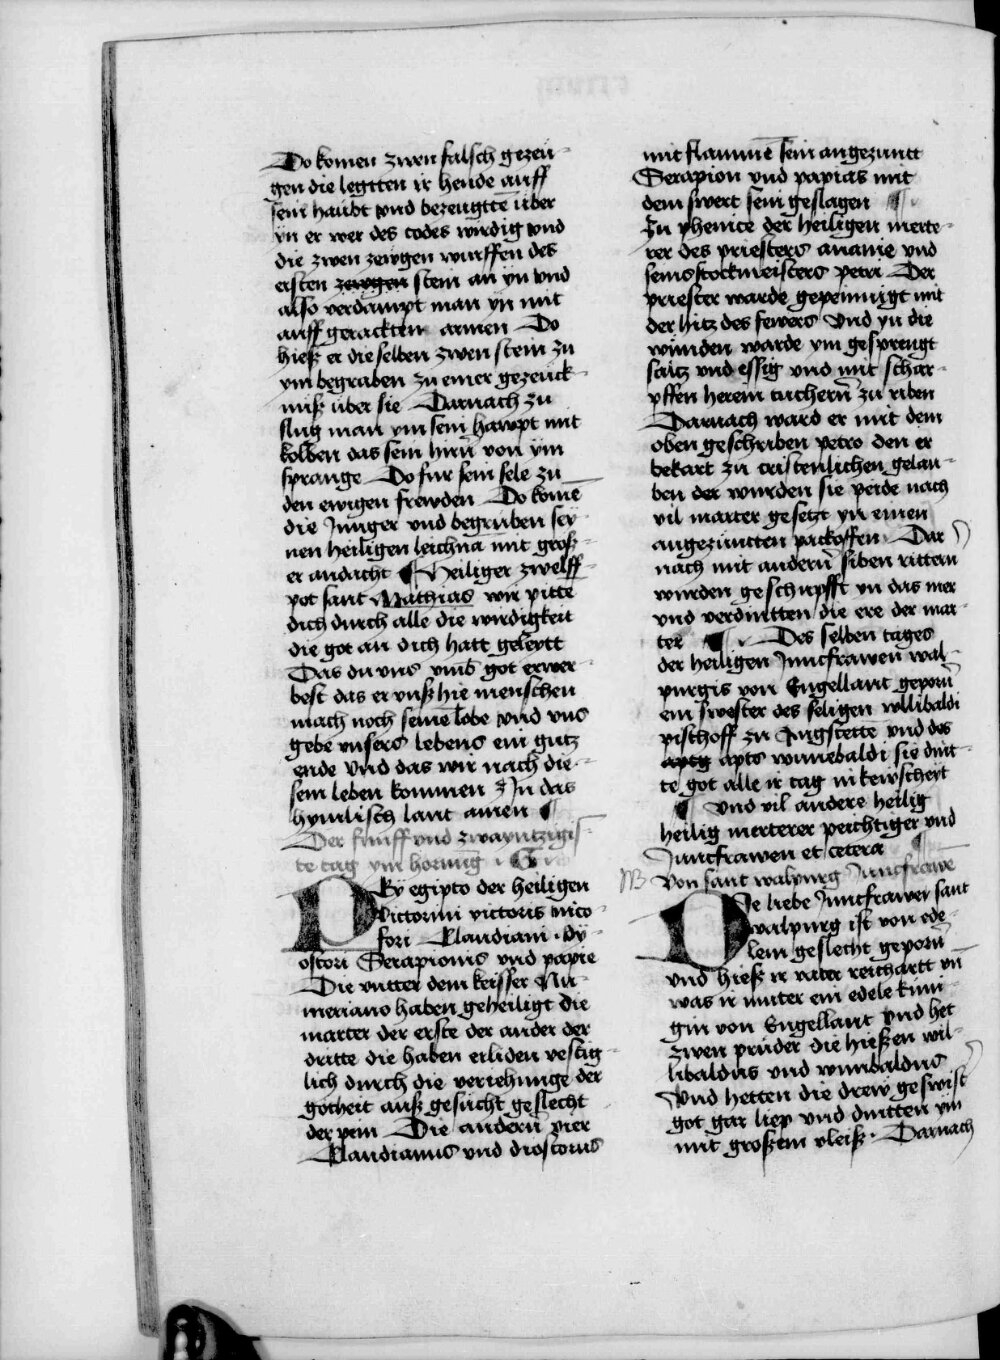 Do komen zwen falsch gezeu-
gen die legtten ir hende auff
sein haubt vnd bezeugtten uber
yn er wer des todes wirdig vnd
die zwen zewgen wurffen des
ersten zewgen stein an yn vnd
also verdampt man yn mit
auff gerackten armen Do
hieß er die selben zwen stein zu
ym begraben zu einer gezeuck-
nuß uber sie Darnach zu
slug man ym sein hawpt mit
kolben das sein hirn von ym
sprange Do fur sein sele zu
den ewigen frewden Do komē
die Junger vnd begruben sey-
nen heiligen leichnā mit groß-
er andacht ¶ Heiliger zwelff-
pot sant Mathias wir pitte
dich durch alle die wirdigkeit
die got an dich hatt geleytt
Das du vns vmb got erwer-
best das er vnß hie menschen
mach noch seinē lobe vnd vns
gebe vnsers lebens ein gutz
ende Vnd das wir nach die-
sem leben kommen Jn das
hymlisch lant amen ¶
Der funff vnd zwayntzigis-
te tag ym hornūg
By egipto der heiligen
Victorini victoris nico-
fori Klaudiani dy-
oscori Serapionis vnd papie
Die vntter dem keisser Nu-
meriano haben geheiligt die
marter der erste der ander der
dritte die haben erliden vestig-
lich durch die veriehunge der
gotheit auß gesucht geslecht
der pein Die andern vier
Klaudianus vnd dioscorus
mit flammē sein angezuntt
Serapion vnd papias mit
dem swert sein geslagen ¶
Zu phenice der heiligen merte-
rer des priesters ananie vnd
seins stockmeisters petri Der
priester warde gepeinnigt mit
der hitz des fewers Vnd yn die
wunden warde ym gesprengt
saltz vnd essig vnd mit schar-
pffen herein tuchern zu riben
Darnach ward er mit dem
oben geschriben petro den er
bekart zu cristenlichen gelau-
ben der wurden sie peide nach
vil marter gesetzt yn einen
angezuntten packoffen Dar
nach mit andern siben rittern
wurden geschupfft yn das mer
vnd verdintten die ere der mar-
ter ¶ Des selben tages
der heiligen Junckfrawen wal-
purgis von Engellant geporn
ein swester des seligen willibaldi
pischoff zu Aygstette vnd des
aptz apts winnebaldi sie dint-
te got alle ir tag in kewscheyt
¶ Vnd vil andere heilig
heilig merterer peichtiger vnd
Junckfrawen et cetera ¶
NB Von sant walpurg Junckfrawē
Die liebe Junckfrawe sant
walpurg ist von ede-
lem geslecht geporn
vnd hieß ir vater reichartt vn
was ir muter ein edele kuni-
gin von Engellant vnd het
zwen pruder die hießen wil-
libaldus vnd winibaldus
Vnd hetten die drew geswist
got gar liep vnd dintten ym
mit großem vleiß Darnach